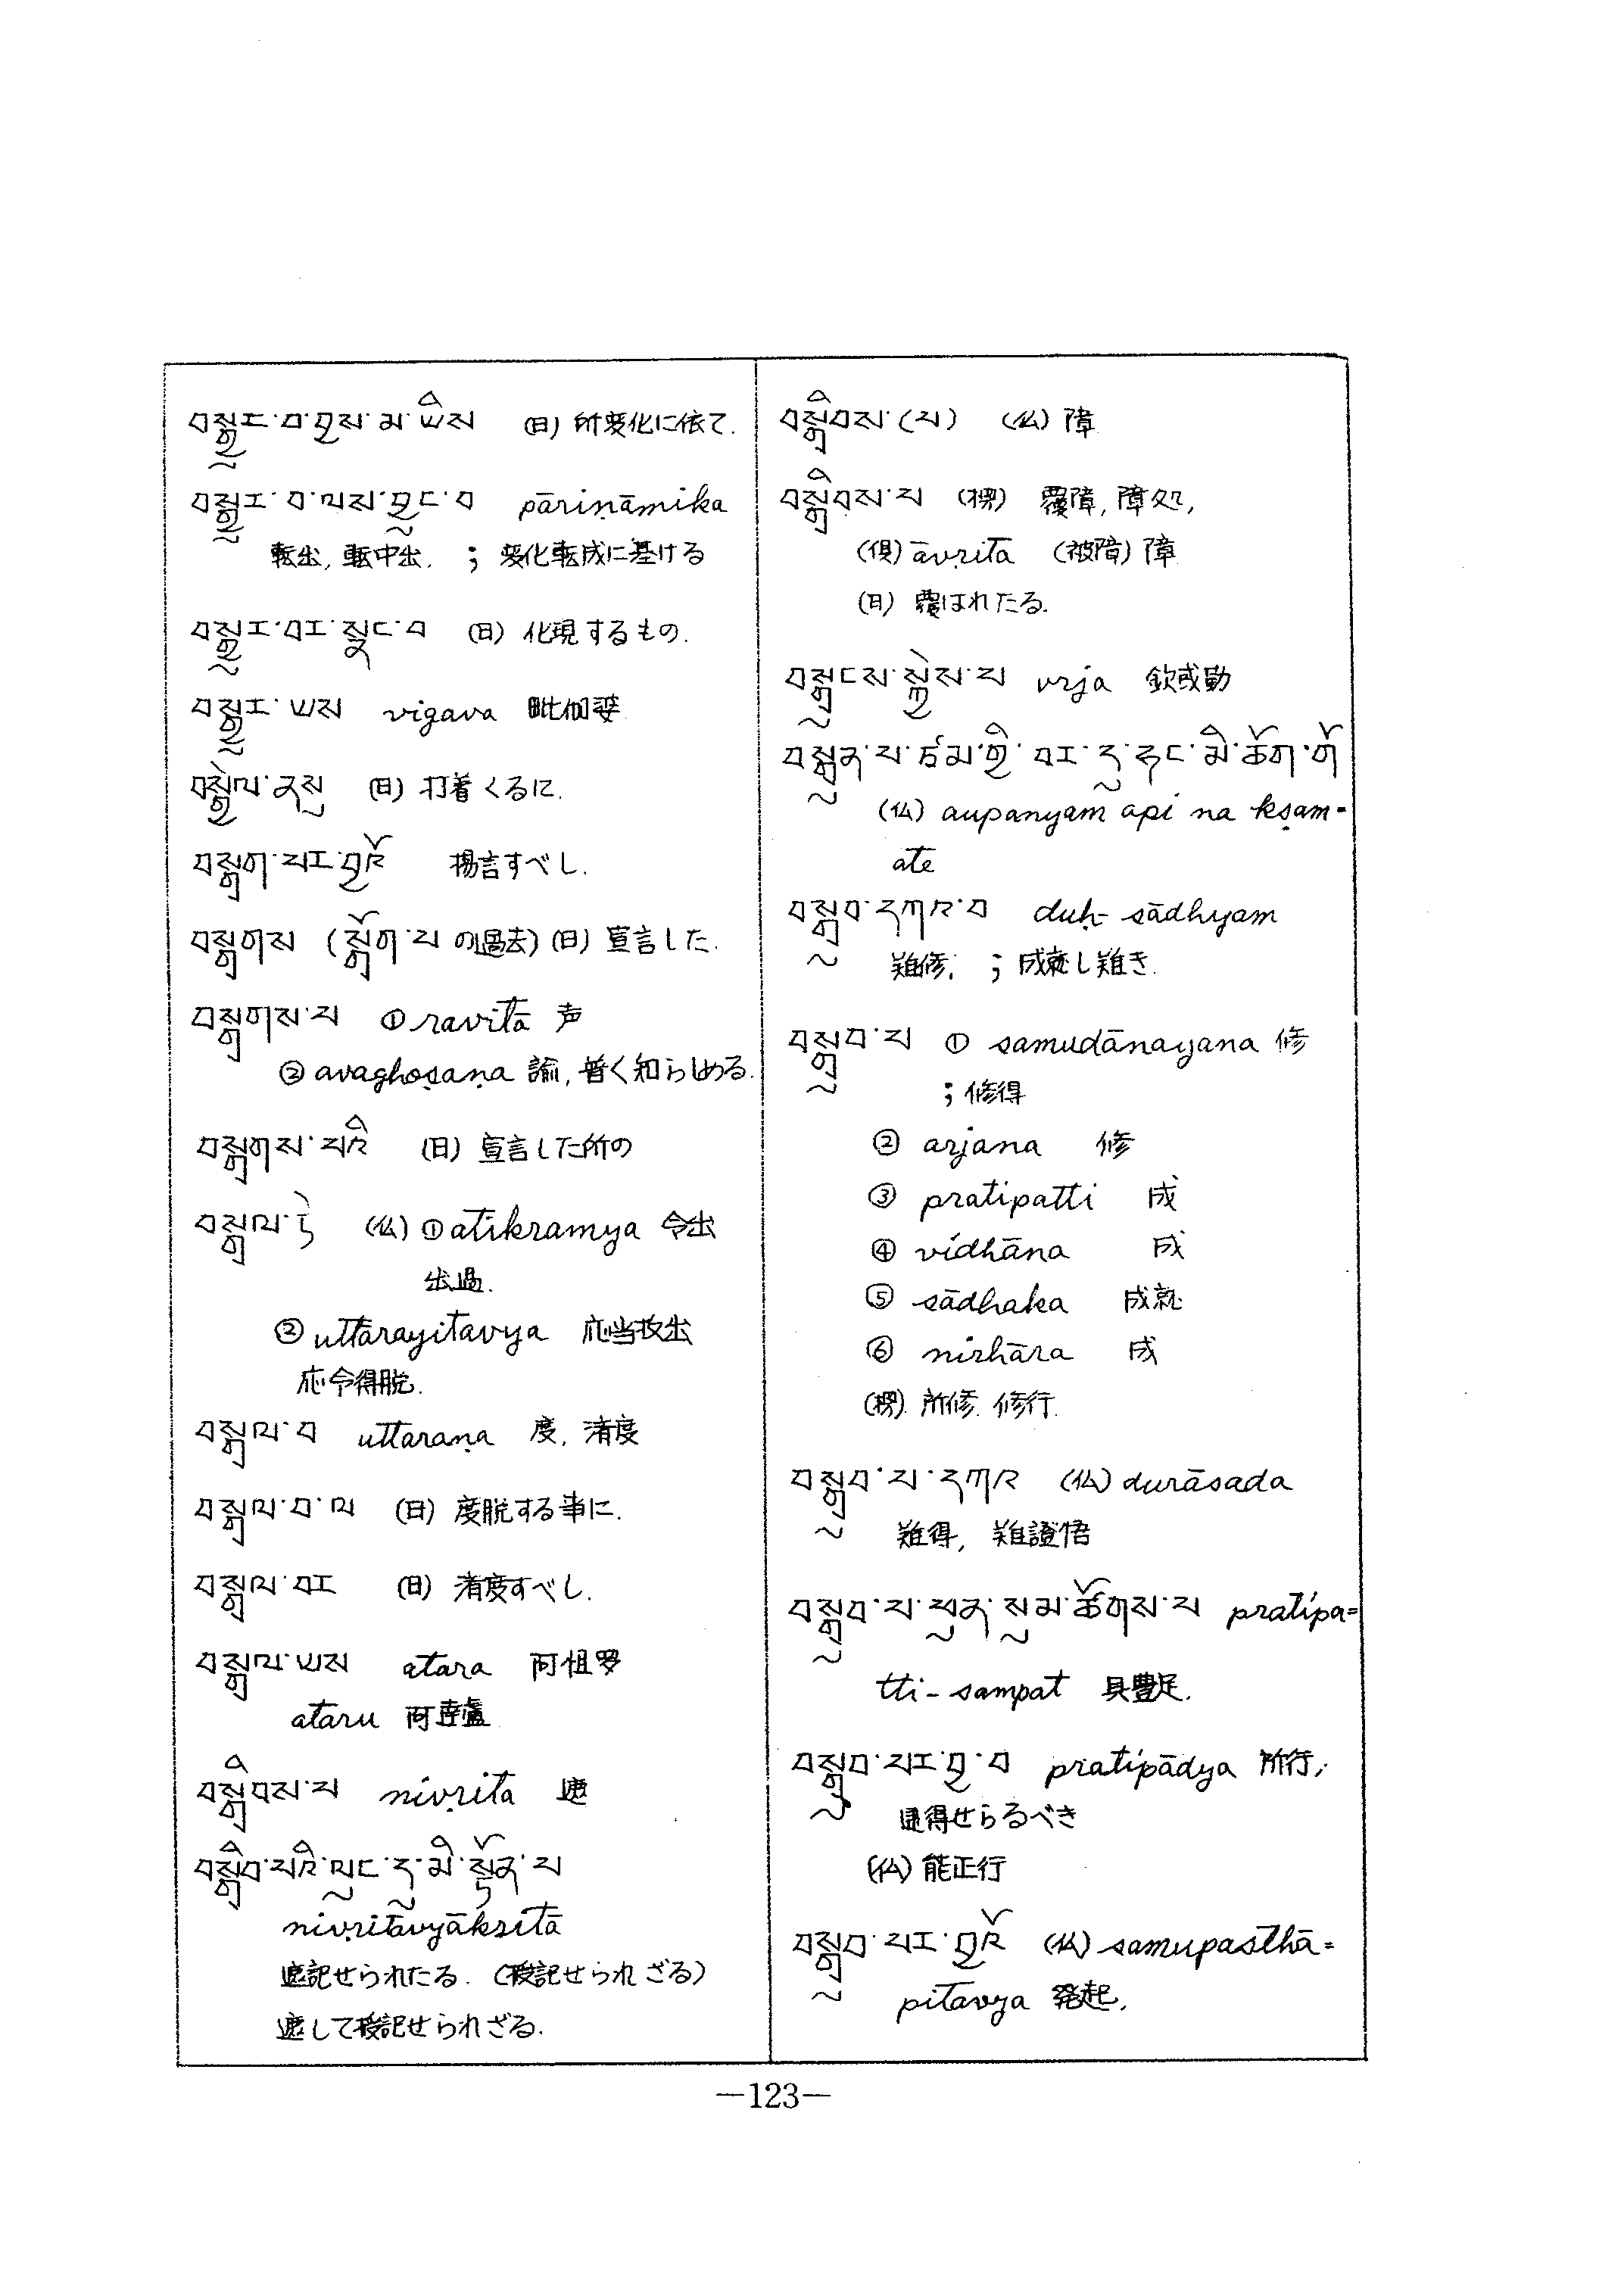 བསྒྱུར་བ་བྱས་མ་ཡིས (日) 所変化に依て.
བསྒྱུར་བ་ལས་བྱུང་བ pāriṇāmika
転出, 転中出. ; 変化転成に基ける
བསྒྱུར་བར་སྣང་བ (日) 化現するもの.
བསྒྱུར་ཡས vigava 毗伽婆
བསྒྱེལ་ནས (日) 打着くるに.
བསྒྲག་པར་བྱའོ 揚言すべし.
བསྒྲགས (སྒྲོག་པ の過去) (日) 宣言した.
བསྒྲགས་པ ① ravitā 声
② avaghoṣaṇa 諭, 普く知らしめる.
བསྒྲགས་པའི (日) 宣言した所の
བསྒྲལ་ཏེ (仏) ① atikramya 令出
出過.
② uttārayitavya 応当抜出
応令得脱.
བསྒྲལ་བ uttaraṇa 度, 済度
བསྒྲལ་བ་ལ (日) 度脱する事に.
བསྒྲལ་བར (日) 済度すべし.
བསྒྲལ་ཡས atara 阿怛罗
ataru 阿達盧
བསྒྲིབས་པ nivṛita 遮
བསྒྲིབ་པའི་ལུང་དུ་མི་སྟོན་པ
nivṛitāvyākṛitā
遮記せられたる. (授記せられざる)
遮して授記せられざる.
བསྒྲིབས (པ) (仏) 障
བསྒྲིབས་པ (楞) 覆障, 障処,
(倶) āvṛita (被障) 障
(日) 覆はれたる.
བསྒྲུངས་སྐྱེས་པ vrja 欽或勤
བསྒྲུན་པ་ཙམ་གྱི་བར་དུ་ཡང་མི་ཆོག་གོ
(仏) aupanyam api na kṣam-
ate
བསྒྲུབ་དཀའ་བ duḥ-sādhyam
難修, ; 成就し難き.
བསྒྲུབ་པ ① samudānayana 修
; 修得
② arjana 修
③ pratipatti 成
④ vidhāna 成
⑤ sādhaka 成就
⑥ nirhāra 成
(楞) 所修. 修行.
བསྒྲུབ་པ་དཀའ (仏) durāsada
難得, 難證悟
བསྒྲུབ་པ་ཕུན་སུམ་ཚོགས་པ pratipa=
tti-sampat 具豊足.
བསྒྲུབ་པར་བྱ་བ pratipādya 所行,
逮得せらるべき
(仏) 能正行
བསྒྲུབ་པར་བྱའོ (仏) samupasthā=
pitavya 発起,
—123—